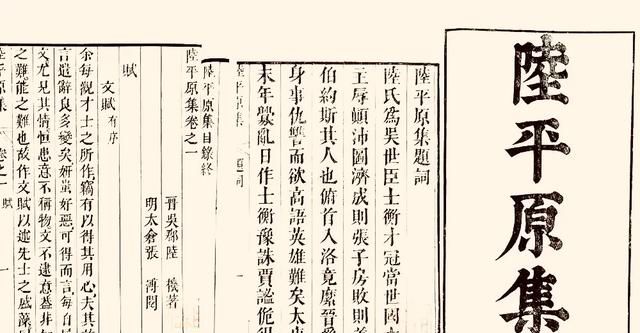 陸平原集
陸平原集題詞
陸氏為吳世臣士衡才冠當世國
主辱顛沛圖濟成則張子房敗則
伯約斯其人也俯首入洛竟縻晉爵
身事仇讐而欲高語英雄難矣太康
末年釁亂日作士衡豫誅賈謐佹得
陸平原集
題詞
一
陸平原集目錄終
陸平原集卷之一
晉吳郡陸 機著
明太倉張 溥閱
賦
文賦有序
余每觀才士之所作竊有以得其用心夫其
言遣辭良多變矣妍蚩好惡可得而言每自
文尤見其情恒患意不稱物文不逮意蓋非
之難能之難也故作文賦以述先士之盛藻
陸平原集
卷之一
賦
一